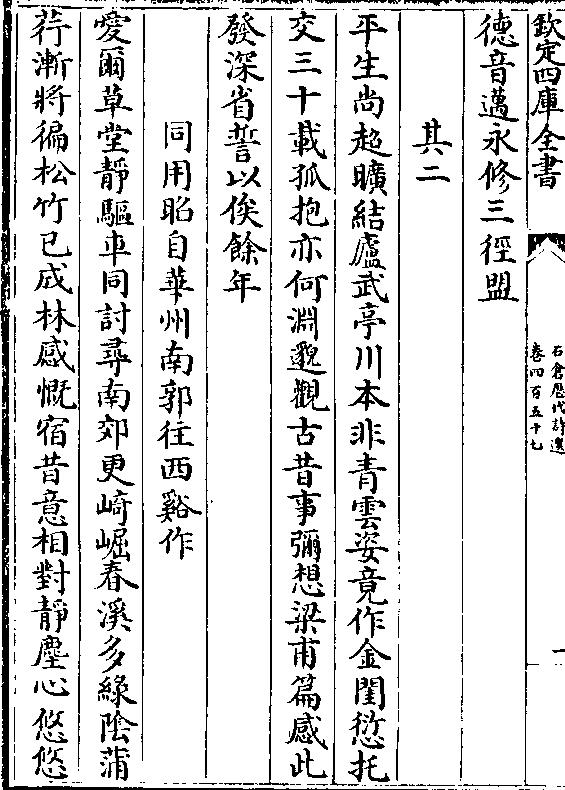 欽定四庫全書
石倉歷代詩選
卷四百五十七
一
德音邁永修三徑盟
其二
平生尚超曠結廬武亭川本非青雲姿竟作金閨愆托
交三十載孤抱亦何淵邈觀古昔事彌想梁甫篇感此
發深省誓以俟餘年
同用昭自華州南郭往西谿作
愛爾草堂靜驅車同討尋南郊更崎崛春溪多綠陰蒲
荇漸將徧松竹已成林感慨宿昔意相對靜塵心悠悠